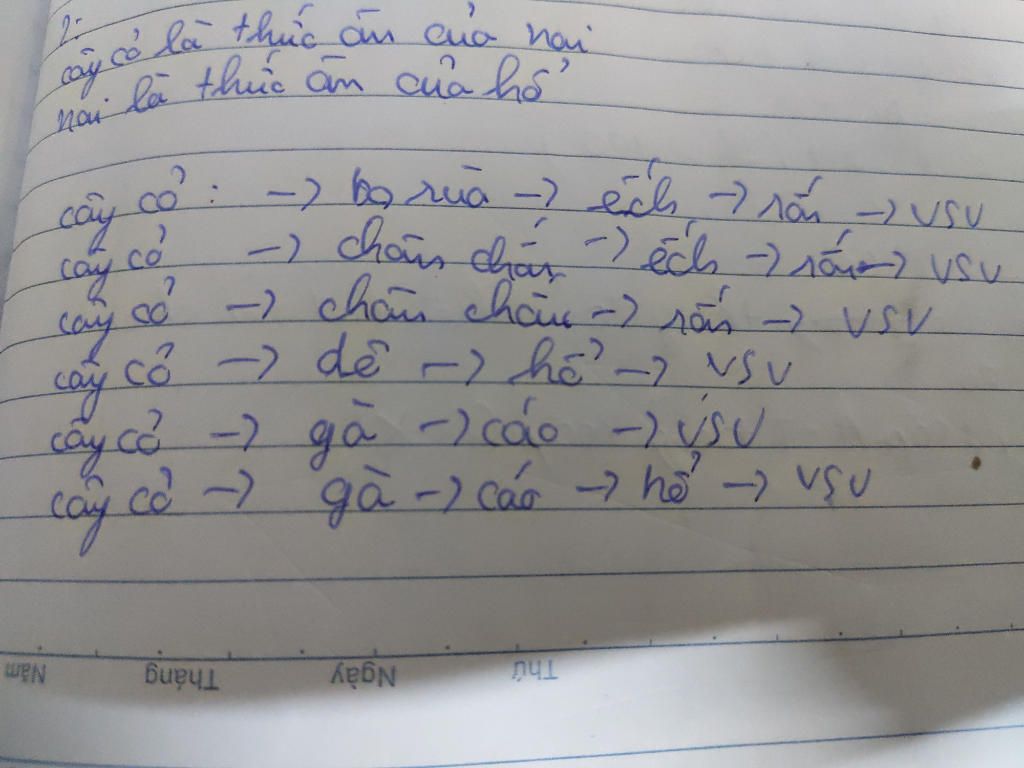 2:
cây cỏ là thức ăn của nai
nai là thức ăn của hổ
cây cỏ : -> bọ rùa -> ếch -> rắn -> VSV
cây cỏ -> châu chấu -> ếch -> rắn -> VSV
cây cỏ -> châu chấu -> rắn -> VSV
cây cỏ -> dê -> hổ -> VSV
cây cỏ -> gà -> cáo -> VSV
cây cỏ -> gà -> cáo -> hổ -> VSV
Thứ Ngày Tháng Năm